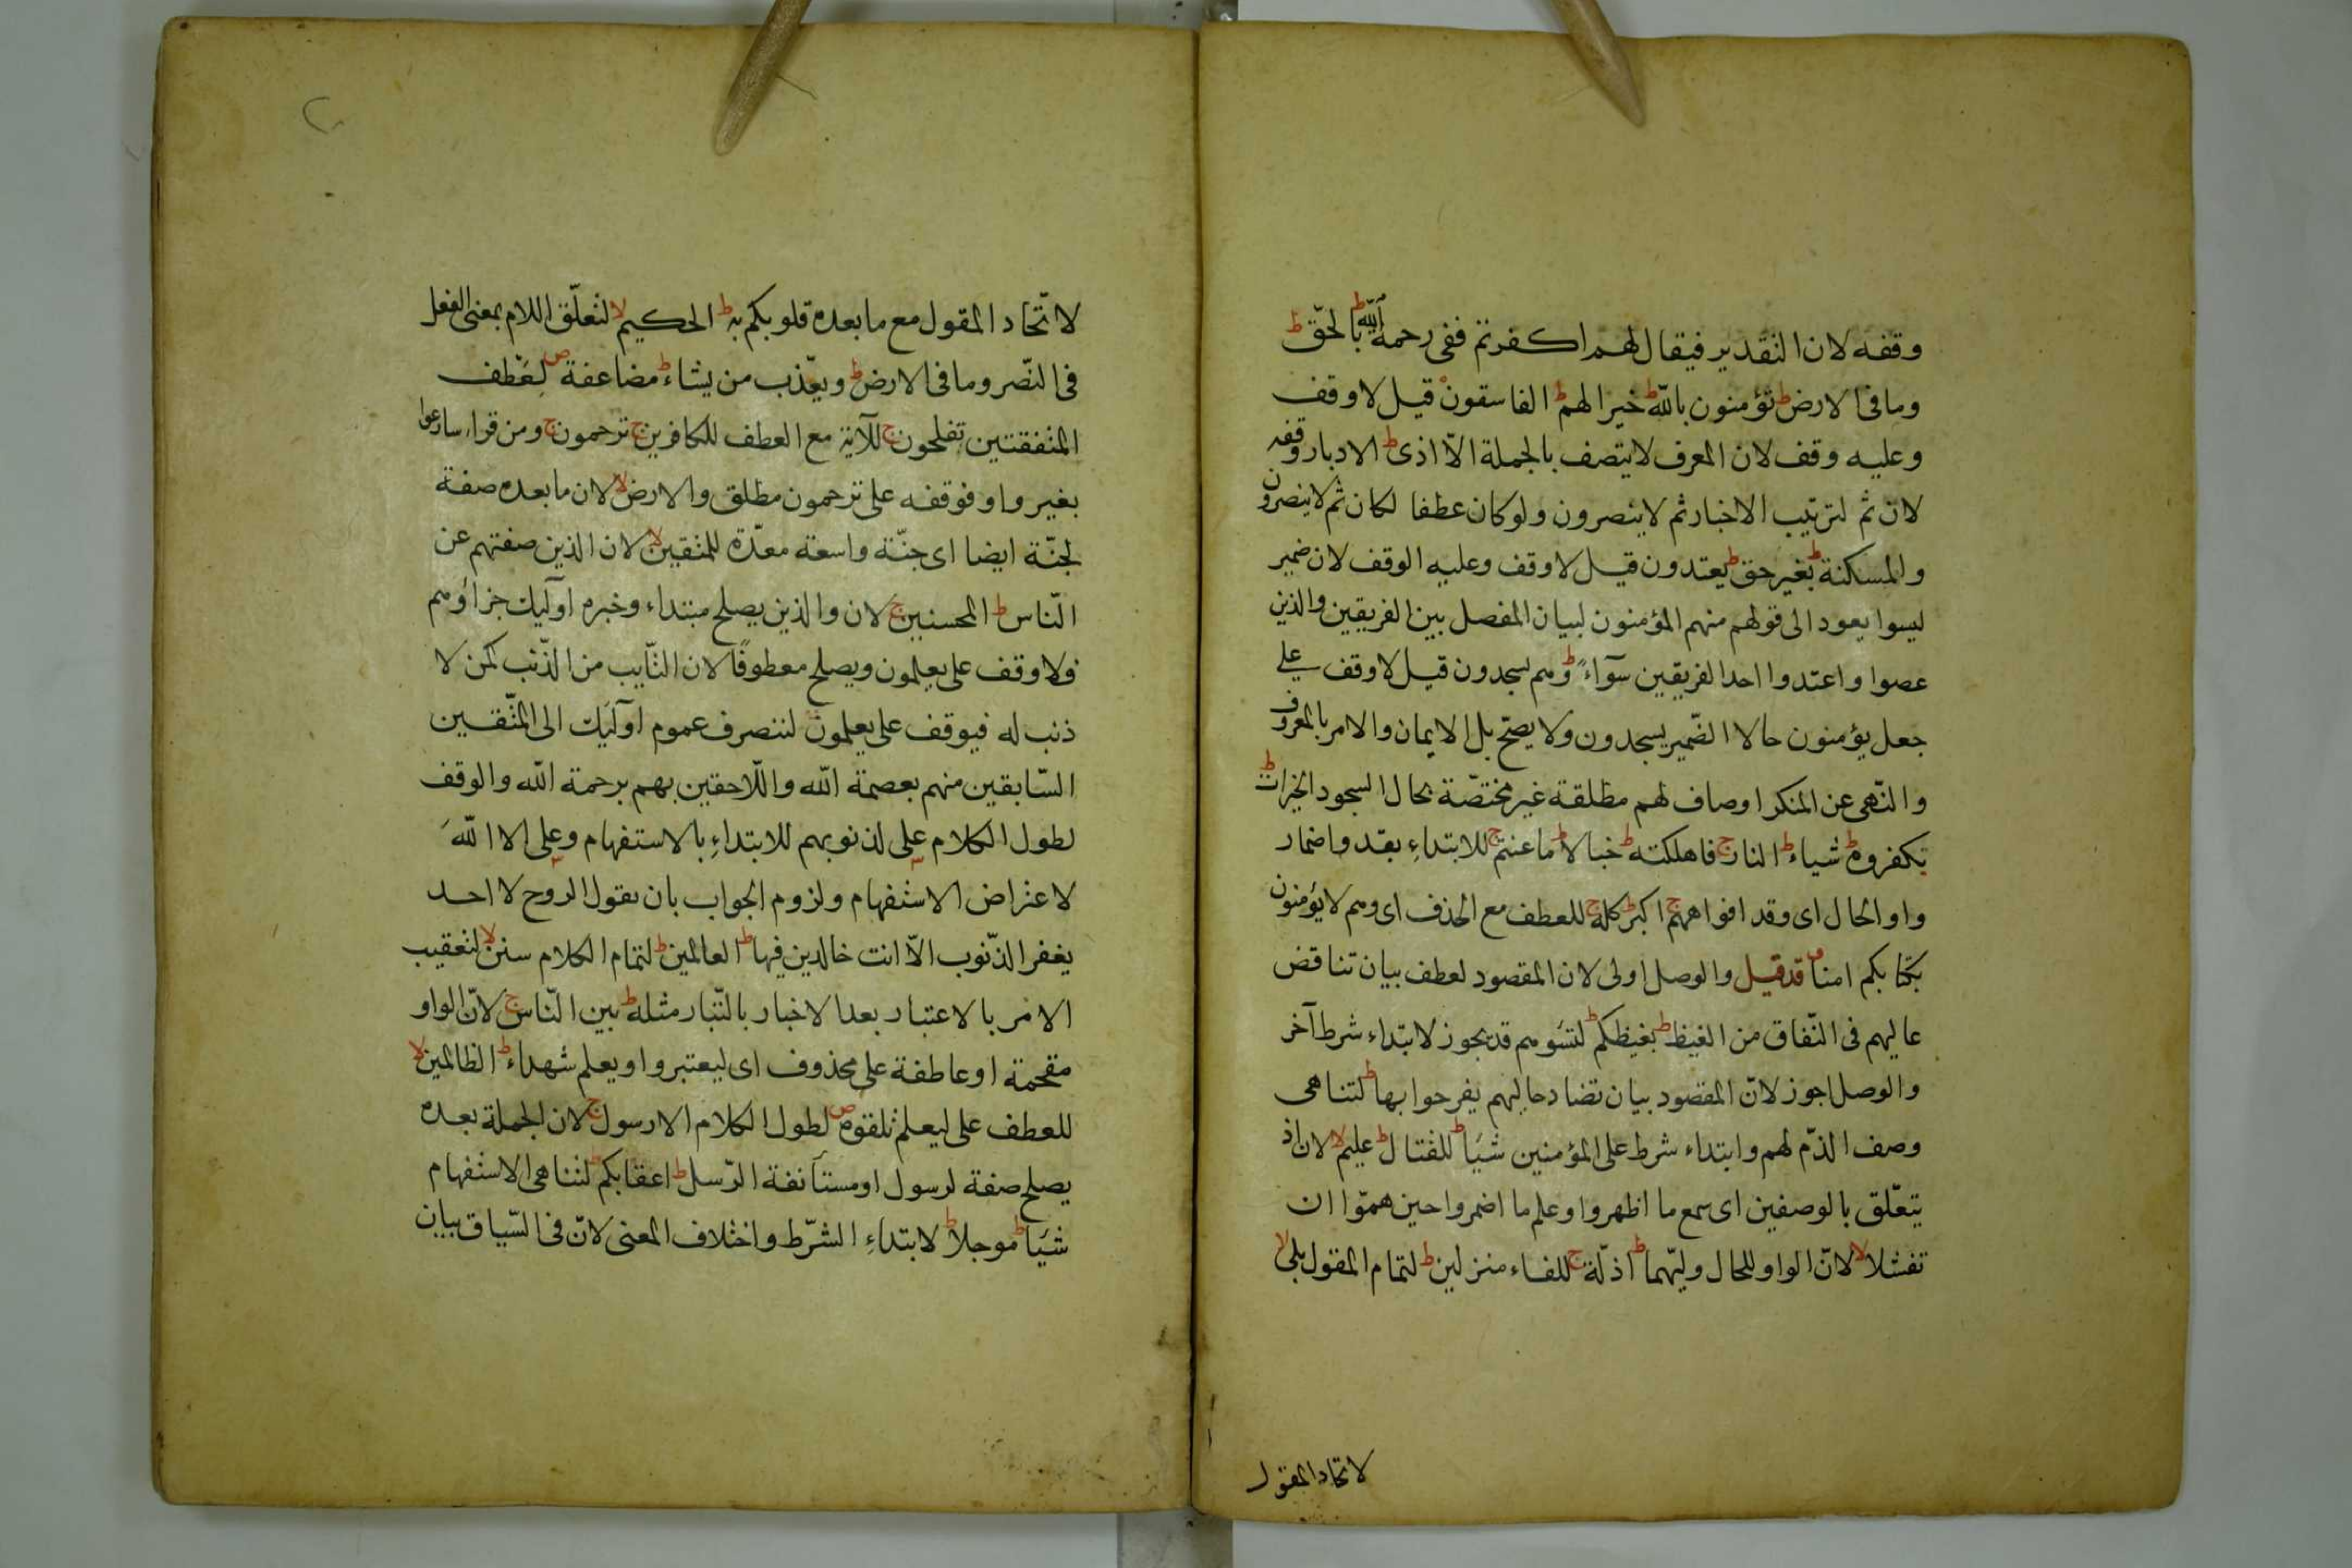 وقفه لان التقدير فيقال لهم اكفرتم ففى رحمة الله ط بالحق ط
وما فى الارض ط تؤمنون بالله ط خيرا لهم ط الفاسقون ه قيل لا وقف
وعليه وقف لان المعرف لا يتصف بالجملة الا اذى ط الادبار وقفه
لان ثم لترتيب الاخبار ثم لا ينصرون ولو كان عطفا لكان ثم لا ينصروا
والمسكنة ط بغير حق ط يعتدون قيل لا وقف وعليه الوقف لان ضمير
ليسوا يعود الى قولهم منهم المؤمنون لبيان المفصل بين الفريقين والذين
عصوا واعتدوا احد الفريقين سوآء ط وهم يسجدون قيل لا وقف على
جعل يؤمنون حالا الضمير يسجدون ولا يصح بل الايمان والامر بالمعروف
والنهى عن المنكر اوصاف لهم مطلقة غير مختصة بحال السجود الخيرات ط
يكفروه ط شياء ط النار ج فاهلكته ط خبالا ط ما عنتم ج للابتداء بقد واضمار
واو الحال اى وقد افواههم ج اكبر ط كله ج للعطف مع الحذف اى وهم لا يؤمنون
بكتابكم امنا قد قيل والوصل اولى لان المقصود لعطف بيان تناقض
حاليهم فى النفاق من الغيظ ط بغيظكم ط لتسوهم قد يجوز لابتداء شرط آخر
والوصل اجوز لان المقصود بيان تضاد حاليهم يفرحوا بها ط لتناهى
وصف الذم لهم وابتداء شرط على المؤمنين شيأ ط للقتال ط عليم لا لان اذ
يتعلق بالوصفين اى سمع ما اظهروا وعلم ما اضمروا حين هموا ان
تفشلا لا لان الواو للحال وليهما ط اذلة ج للفاء منزلين ط لتمام المقول بلى لا
لاتحاد المقول
لاتحاد المقول مع ما بعده قلوبكم به ط الحكيم لا لتعلق اللام بمعنى الفعل
فى النصر وما فى الارض ط ويعذب من يشاء ط مضاعفة ص لعطف
المتفقتين تفلحون ج للآية مع العطف للكافرين ج ترحمون ج ومن قراء سارعوا
بغير واو فوقفه على ترحمون مطلق والارض لا لان ما بعده صفة
لجنة ايضا اى جنة واسعة معدة للمتقين لا لان الذين صفتهم عن
الناس ط المحسنين ج لان والذين يصلح مبتداء وخبره اوليك جزاؤهم
ولا وقف على يعلمون ويصلح معطوفا لان التايب من الذنب كمن لا
ذنب له فيوقف على يعلمون لتنصرف عموم اوليك الى المتقين
السابقين منهم بعصمة الله واللاحقين بهم برحمة الله والوقف
لطول الكلام على لذنوبهم للابتداء بالاستفهام وعلى الا الله
لاعتراض الاستفهام ولزوم الجواب بان يقول الروح لا احد
يغفر الذنوب الا انت خالدين فيها ط العالمين ط لتمام الكلام سنن لا لتعقيب
الامر بالاعتبار بعد الاخبار بالتبار مثله ط بين الناس ج لان الواو
مقحمة او عاطفة على محذوف اى ليعتبروا ويعلم شهداء ط الظالمين لا
للعطف على ليعلم تلقوه ص لطول الكلام الا رسول ج لان الجملة بعده
يصلح صفة لرسول او مستأنفة الرسل ط اعقابكم ط لتناهى الاستفهام
شيأ ط موجلا ط لابتداء الشرط واختلاف المعنى لان فى السياق بيان